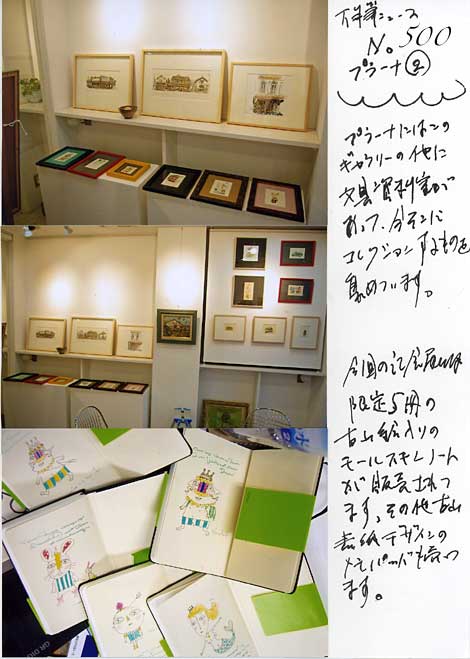 万年筆ニュース
No 500
プラーナ②
プラーナにはこの
ギャラリーの他に
文具資料室が
あって、今そこに
コレクションするものを
集めています。
今回の記念展には
限定5冊の
古山絵入りの
モールスキンノート
が販売
ます、その他古山
表紙デザインの
メモパッドも
ます。